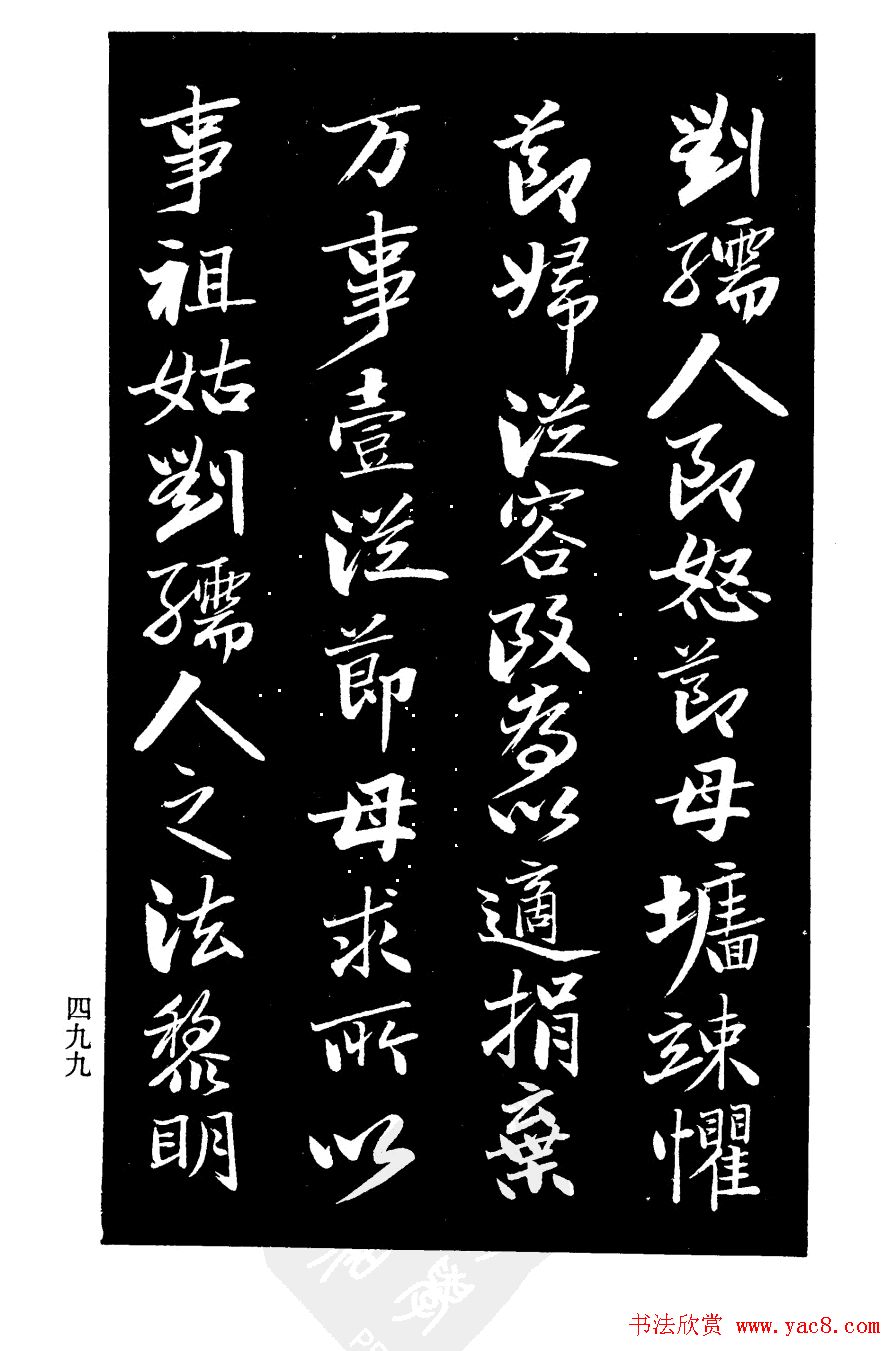 劉孺人即怒節母墻竦懼
節婦從容改為以適捐棄
万事壹從節母求所以
事祖姑劉孺人之法黎明
四九九
书法欣赏 www.yac8.com